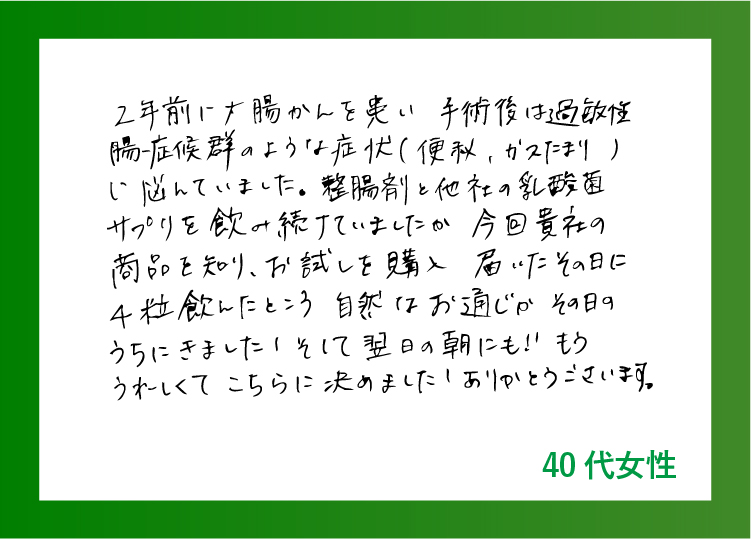 2年前に大腸がんを患い 手術後は過敏性
腸症候群のような症状(便秘、ガスたまり)
に悩んでいました。整腸剤と他社の乳酸菌
サプリを飲み続けていましたが 今回貴社の
商品を知り、お試しを購入 届いたその日に
4粒飲んだところ 自然なお通じが その日の
うちにきました!そして翌日の朝にも!!もう
うれしくて こちらに決めました!ありがとうございます。
40代女性